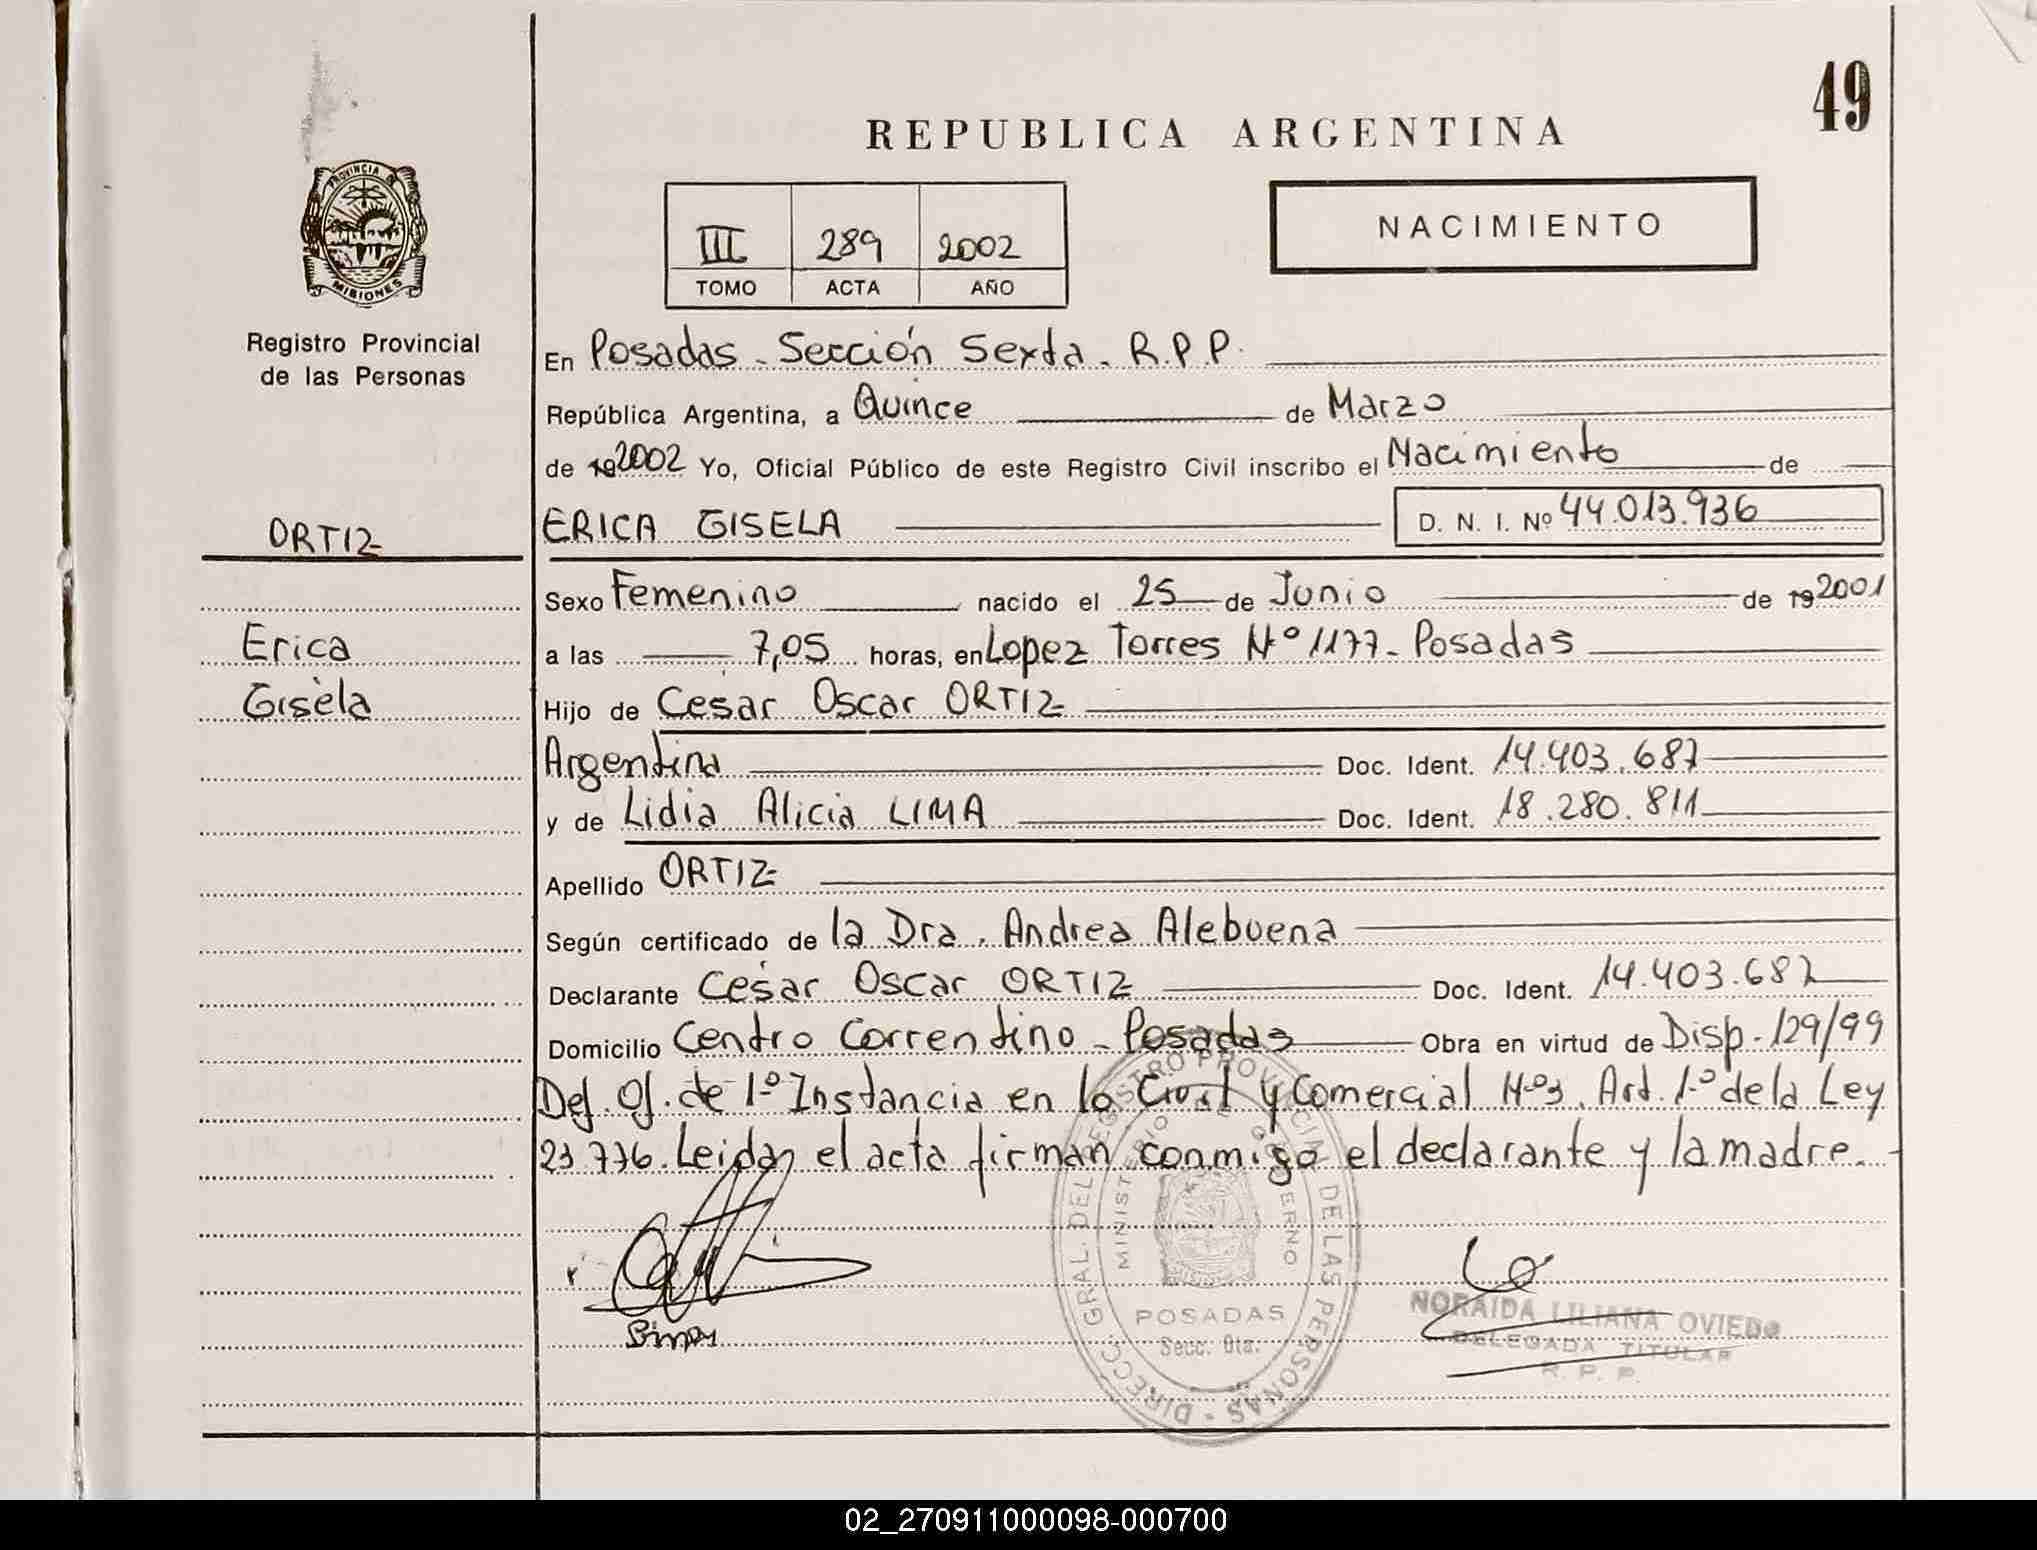 49
REPUBLICA ARGENTINA
PROVINCIA DE
MISIONES
Registro Provincial
de las Personas
III 289 2002
TOMO ACTA AÑO
NACIMIENTO
En Posadas - Sección Sexta - R.P.P.
República Argentina, a Quince de Marzo
de 192002 Yo, Oficial Público de este Registro Civil inscribo el Nacimiento de
ORTIZ
ERICA GISELA D. N. I. Nº 44.013.936
Sexo Femenino nacido el 25 de Junio de 192001
Erica
a las 7,05 horas, en Lopez Torres Nº 1177 - Posadas
Gisela
Hijo de Cesar Oscar ORTIZ
Argentina Doc. Ident. 14.403.687
y de Lidia Alicia LIMA Doc. Ident. 18.280.811
Apellido ORTIZ
Según certificado de la Dra. Andrea Alebuena
Declarante Cesar Oscar ORTIZ Doc. Ident. 14.403.687
Domicilio Centro Correntino - Posadas Obra en virtud de Disp. 129/99
Def. Of. de 1º Instancia en lo Civil y Comercial Nº3. Art. 1º de la Ley
23.776. Leida el acta firman conmigo el declarante y la madre.
DIRECC. GRAL. DEL REGISTRO PROVINCIAL DE LAS PERSONAS
MINISTERIO DE GOBIERNO
POSADAS
Secc. 6ta.
NORAIDA LILIANA OVIEDO
DELEGADA TITULAR
R. P. P.
02_270911000098-000700